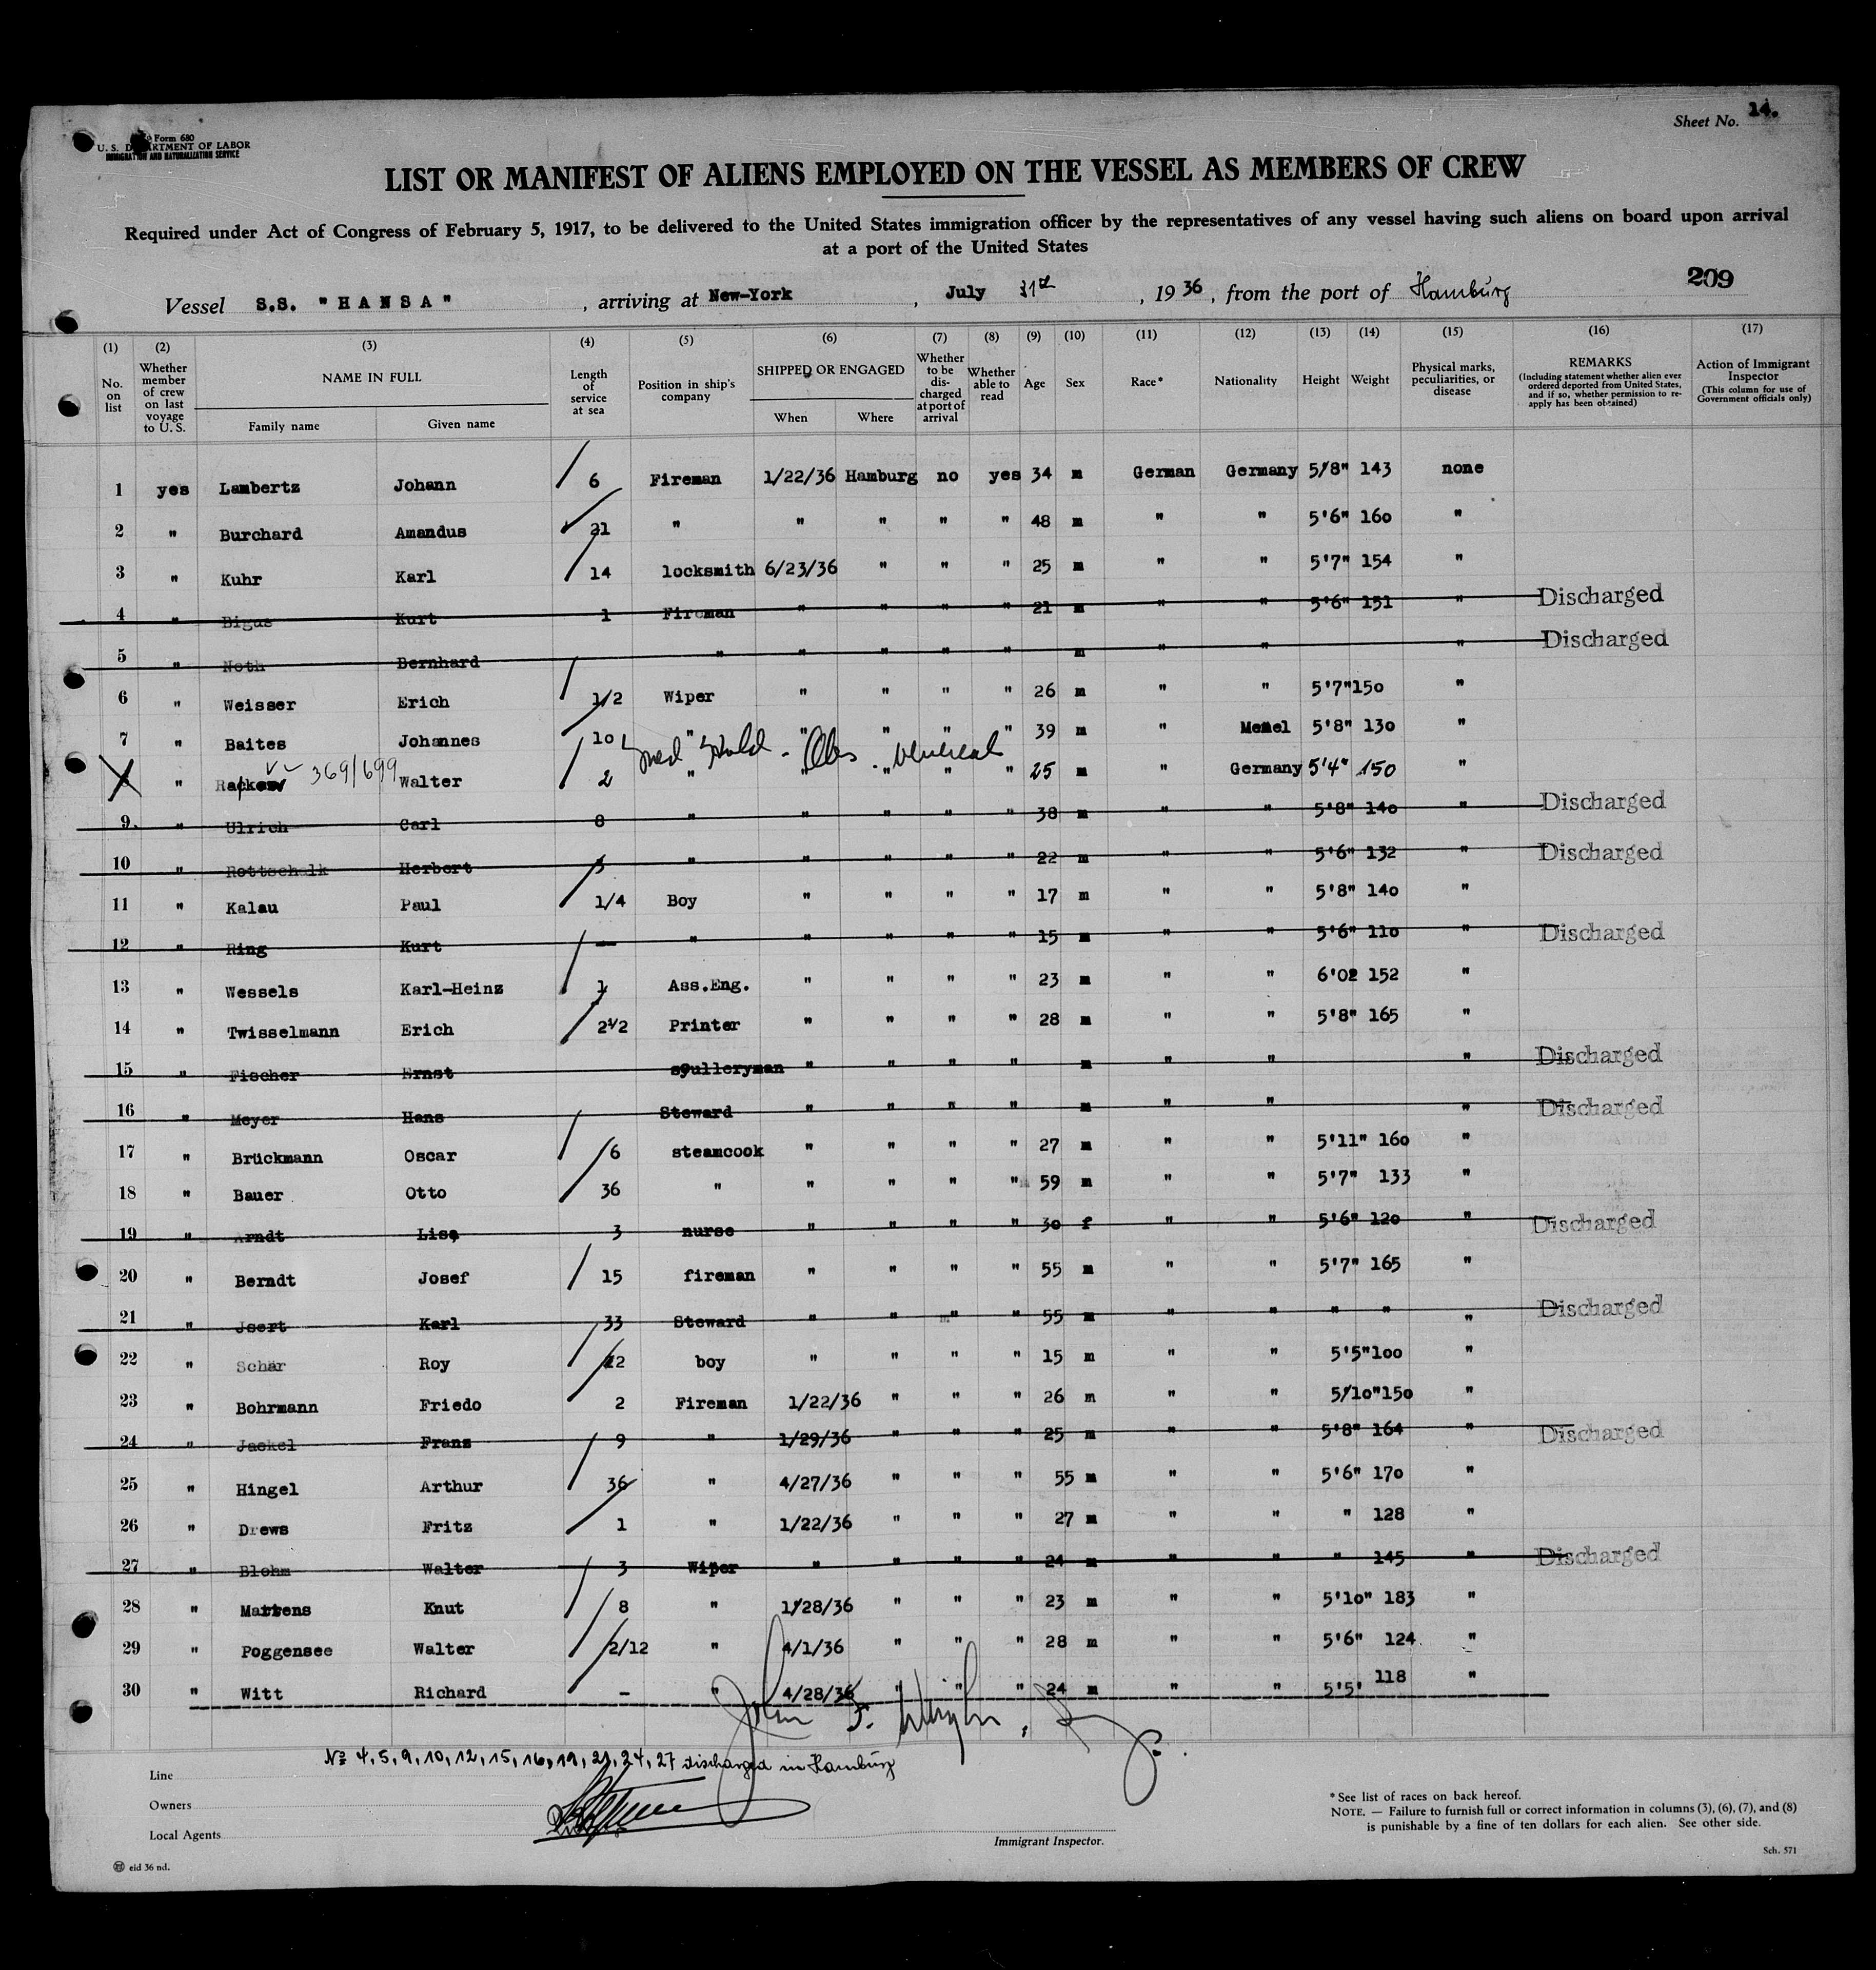 Sheet No. 14.
Form 680
U. S. DEPARTMENT OF LABOR
IMMIGRATION AND NATURALIZATION SERVICE
LIST OR MANIFEST OF ALIENS EMPLOYED ON THE VESSEL AS MEMBERS OF CREW
Required under Act of Congress of February 5, 1917, to be delivered to the United States immigration officer by the representatives of any vessel having such aliens on board upon arrival
at a port of the United States
209
Vessel S.S. "HANSA" , arriving at New-York , July 31st , 1936, from the port of Hamburg
(1) (2) (3) (4) (5) (6) (7) (8) (9) (10) (11) (12) (13) (14) (15) (16) (17)
No. on list
Whether member of crew on last voyage to U. S.
NAME IN FULL
Family name Given name
Length of service at sea
Position in ship's company
SHIPPED OR ENGAGED
When Where
Whether to be discharged at port of arrival
Whether able to read
Age Sex Race* Nationality Height Weight
Physical marks, peculiarities, or disease
REMARKS
(Including statement whether alien ever ordered deported from United States, and if so, whether permission to reapply has been obtained)
Action of Immigrant Inspector
(This column for use of Government officials only)
1 yes Lambertz Johann 6 Fireman 1/22/36 Hamburg no yes 34 m German Germany 5/8" 143 none
2 " Burchard Amandus 21 " " " " " 48 m " " 5'6" 160 "
3 " Kuhr Karl 14 locksmith 6/23/36 " " " 25 m " " 5'7" 154 "
4 " Bigus Kurt 1 Fireman " " " " 21 m " " 5'6" 151 " Discharged
5 " Noth Bernhard " " " " " m " " " Discharged
6 " Weisser Erich 1/2 Wiper " " " " 26 m " " 5'7" 150 "
7 " Baites Johannes 10 " " " " " 39 m " Memel 5'8" 130 "
Med Hold - Obs. Venereal
" Rackow 369/699 Walter 2 " " " " " 25 m " Germany 5'4" 150 "
9. " Ulrich Carl 8 " " " " " 38 m " " 5'8" 140 " Discharged
10 " Rottschalk Herbert 5 " " " " " 22 m " " 5'6" 132 " Discharged
11 " Kalau Paul 1/4 Boy " " " " 17 m " " 5'8" 140 "
12 " Ring Kurt — " " " " " 15 m " " 5'6" 110 " Discharged
13 " Wessels Karl-Heinz 1 Ass.Eng. " " " " 23 m " " 6'02 152 "
14 " Twisselmann Erich 2 1/2 Printer " " " " 28 m " " 5'8" 165 "
15 " Fischer Ernst sculleryman " " " " m " " " Discharged
16 " Meyer Hans Steward " " " " m " " " Discharged
17 " Brückmann Oscar 6 steamcook " " " " 27 m " " 5'11" 160 "
18 " Bauer Otto 36 " " " " " 59 m " " 5'7" 133 "
19 " Arndt Lisa 3 nurse " " " " 30 f " " 5'6" 120 " Discharged
20 " Berndt Josef 15 fireman " " " " 55 m " " 5'7" 165 "
21 " Jsert Karl 33 Steward " " " " 55 m " " " " " Discharged
22 " Schär Roy 12 boy " " " " 15 m " " 5'5" 100 "
23 " Bohrmann Friedo 2 Fireman 1/22/36 " " " 26 m " " 5/10" 150 "
24 " Jaekel Franz 9 " 1/29/36 " " " 25 m " " 5'8" 164 " Discharged
25 " Hingel Arthur 36 " 4/27/36 " " " 55 m " " 5'6" 170 "
26 " Drews Fritz 1 " 1/22/36 " " " 27 m " " " 128 "
27 " Blohm Walter 3 Wiper " " " " 24 m " " " 145 " Discharged
28 " Martens Knut 8 " 1/28/36 " " " 23 m " " 5'10" 183 "
29 " Poggensee Walter 2/12 " 4/1/36 " " " 28 m " " 5'6" 124 "
30 " Witt Richard – " 4/28/36 " " " 24 m " " 5'5' 118 "
John F.
No 4, 5, 9, 10, 12, 15, 16, 19, 21, 24, 27 discharged in Hamburg
Line
Owners
Local Agents
Immigrant Inspector.
* See list of races on back hereof.
NOTE. — Failure to furnish full or correct information in columns (3), (6), (7), and (8)
is punishable by a fine of ten dollars for each alien. See other side.
eid 36 nd.
Sch. 571